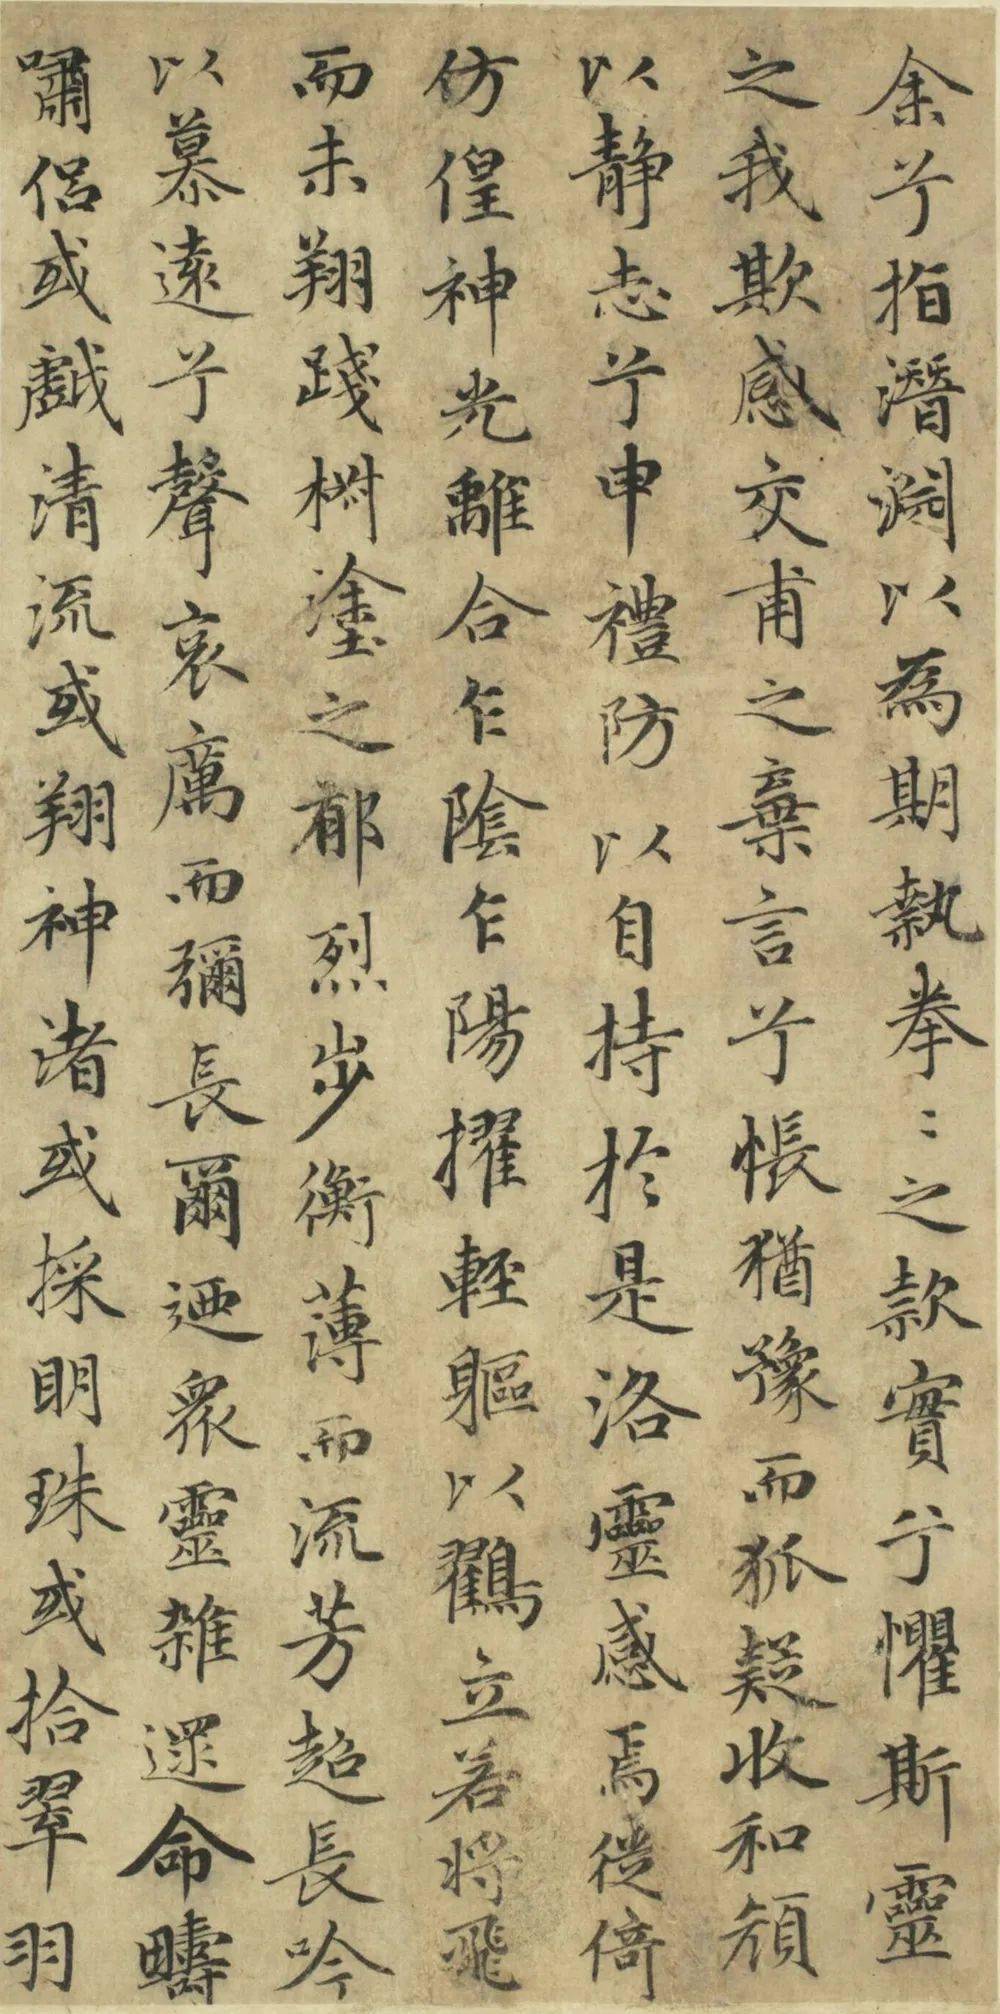 余兮指潛淵以為期執拳〻之款實兮懼斯靈
之我欺感交甫之棄言兮悵猶豫而狐疑收和顏
以靜志兮申禮防以自持於是洛靈感焉徙倚
仿偟神光離合乍陰乍陽擢輕軀以鸖立若將飛
而未翔踐椒塗之郁烈步衡薄而流芳超長吟
以慕遠兮聲哀厲而彌長爾迺衆靈雜遝命疇
嘯侶或戲清流或翔神渚或採明珠或拾翠羽